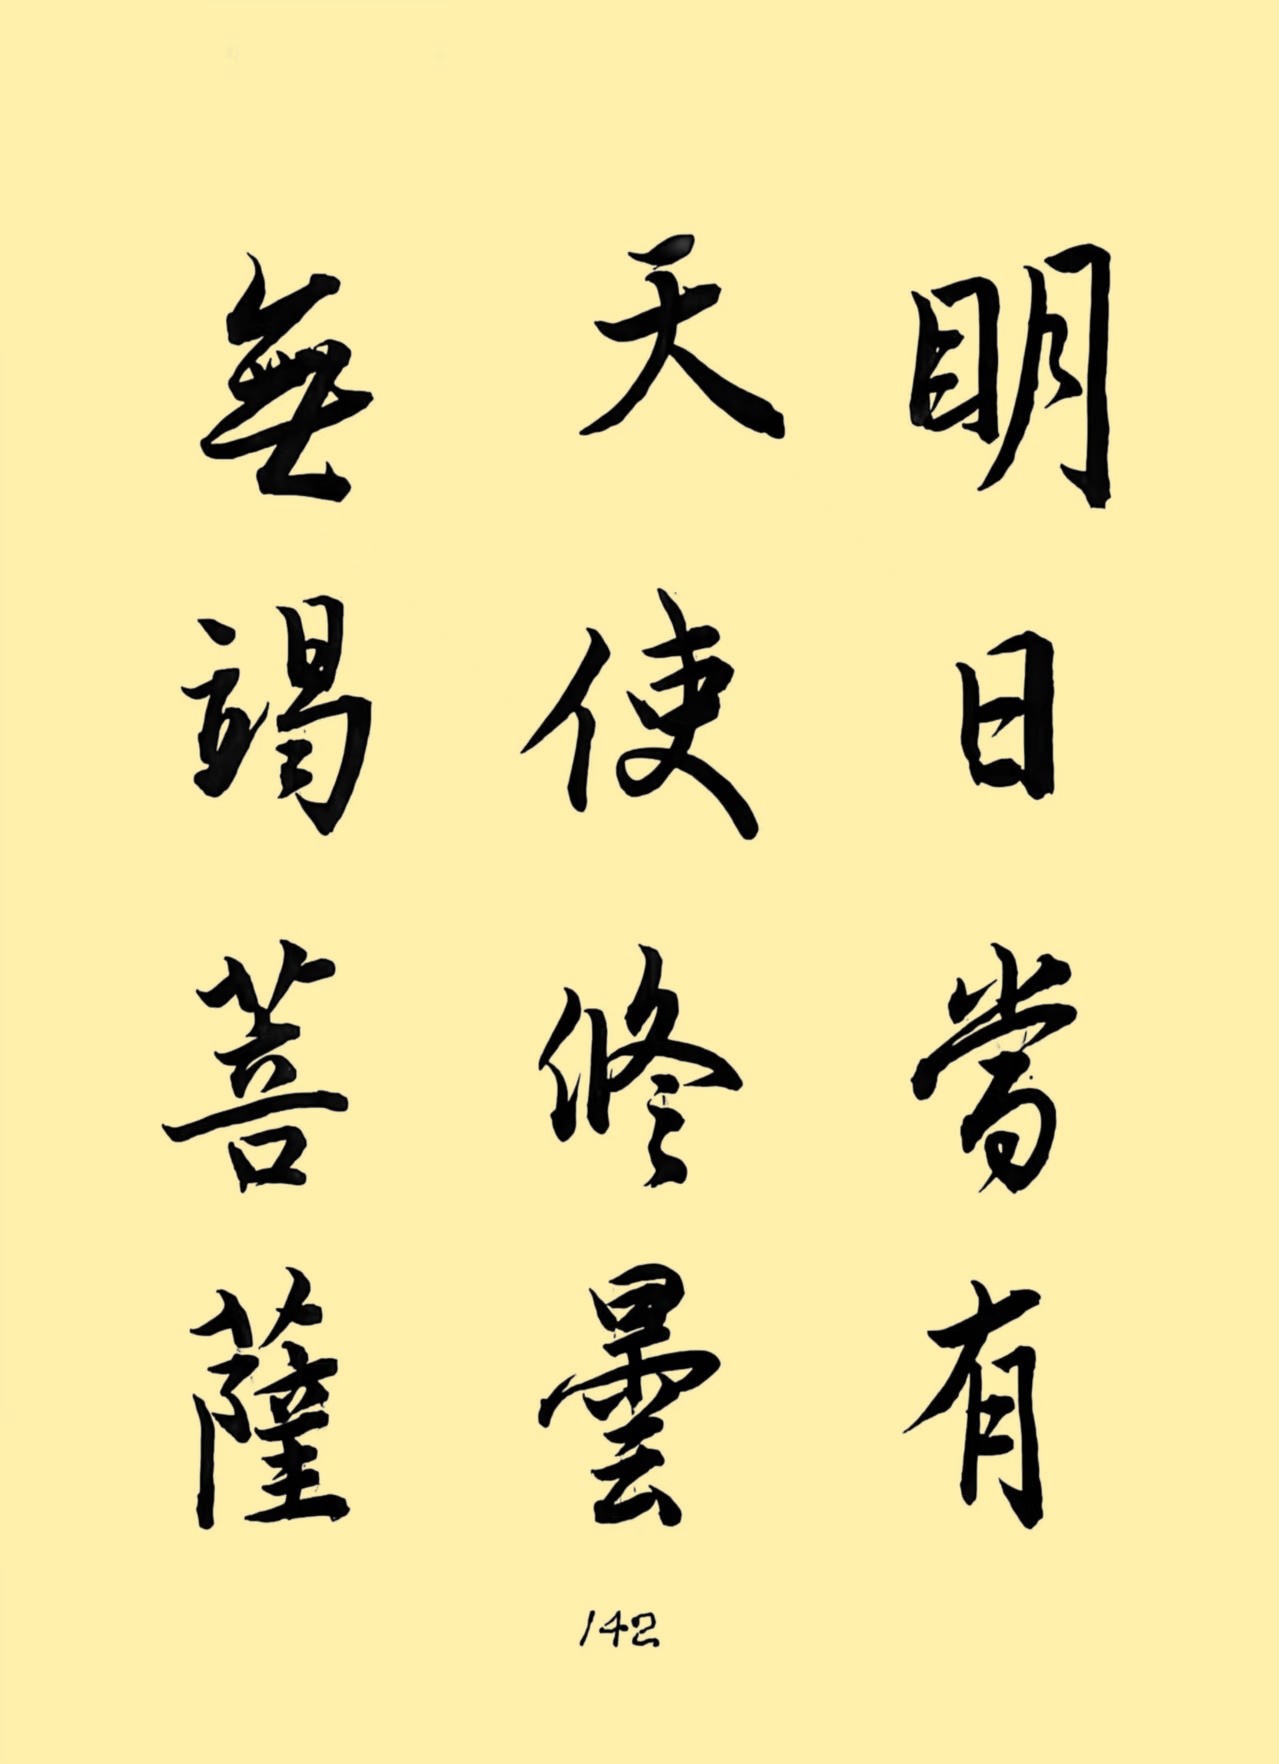 明日當有
天使修曇
無竭菩薩
142